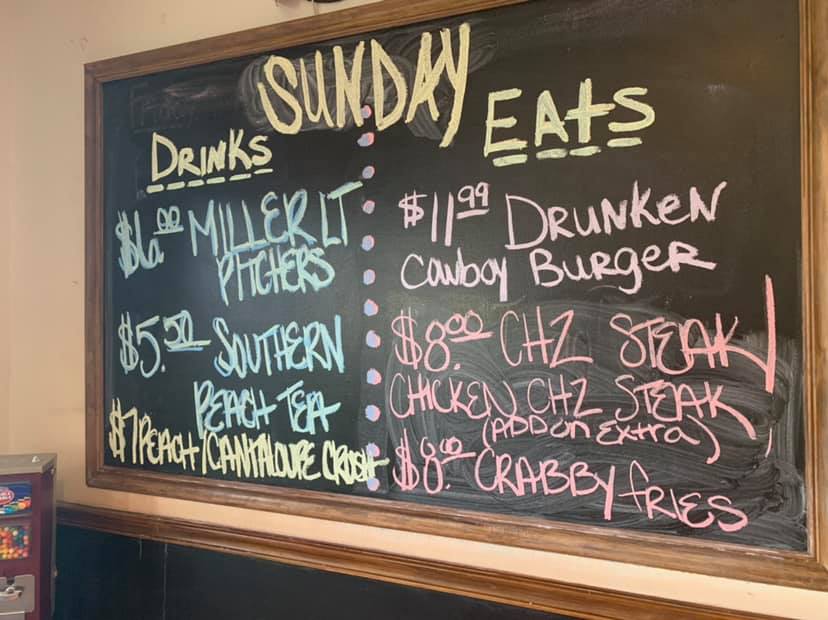 SUNDAY
DRINKS
$6.00 MILLER LT
PITCHERS
$5.50 SOUTHERN
PEACH TEA
$7 PEACH/CANTALOUPE CRUSH
EATS
$11.99 DRUNKEN
Cowboy Burger
$8.00 CHZ STEAK/
CHICKEN CHZ STEAK
(ADD ON EXTRA)
$8.00 CRABBY FRIES